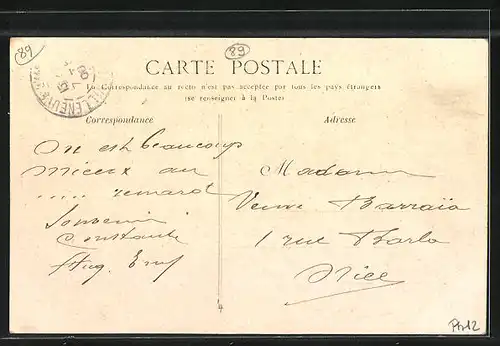 89
89
CARTE POSTALE
La Correspondance au recto n'est pas acceptée par tous les pays étrangers
(se renseigner à la Poste)
Correspondance
Adresse
On est beaucoup
mieux au
..... renard
Souvenir
Constante
Aug.
Madame
Veuve Barraïa
1 rue Barla
Nice